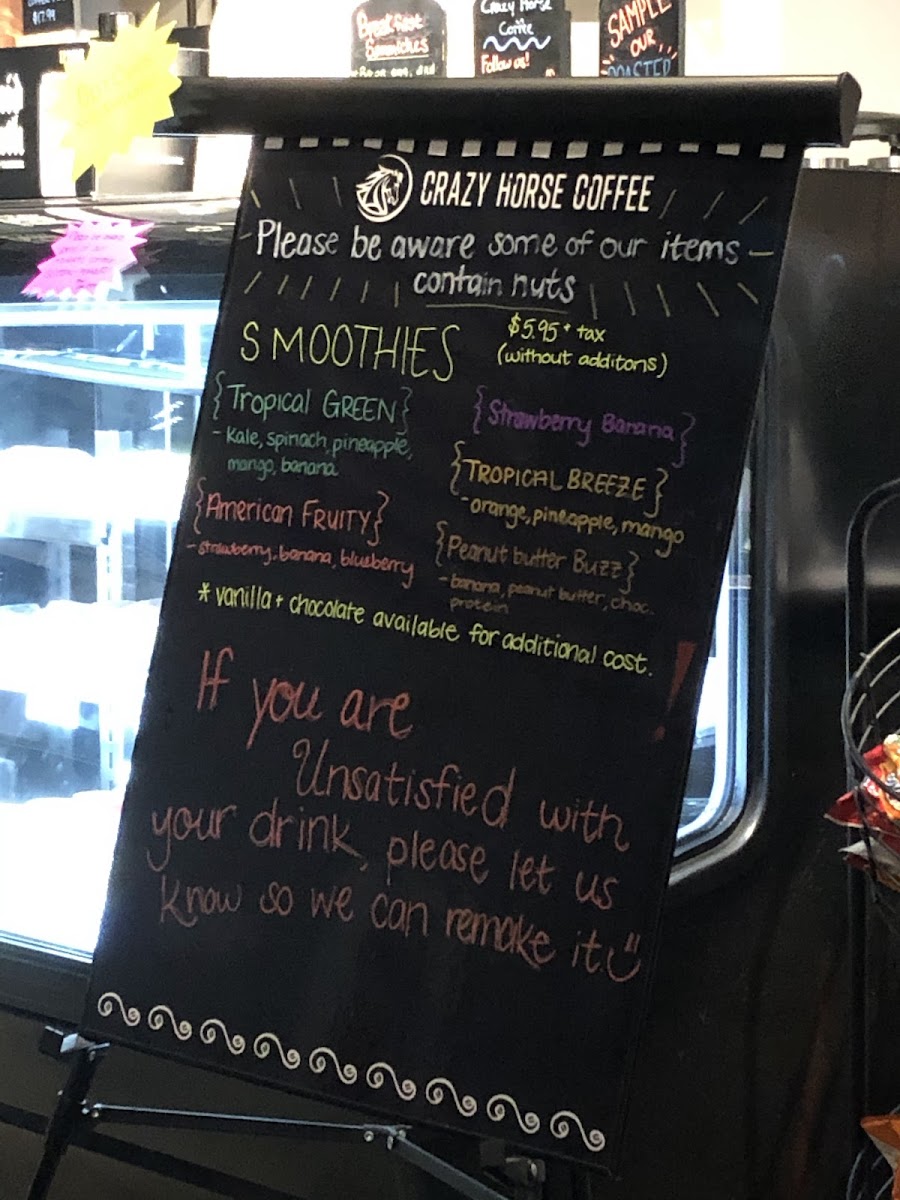 $17.99
Breakfast
Sandwiches
Crazy Horse
Coffee
Follow us!
SAMPLE
OUR
ROASTED
CRAZY HORSE COFFEE
Please be aware some of our items
contain nuts
SMOOTHIES
$5.95+ tax
(without additons)
{Tropical GREEN}
- Kale, spinach, pineapple,
mango, banana
{American FRUITY}
- strawberry, banana, blueberry
{Strawberry Banana}
{TROPICAL BREEZE}
- orange, pineapple, mango
{Peanut butter Buzz}
- banana, peanut butter, choc.
protein
* vanilla + chocolate available for additional cost.
If you are
Unsatisfied with
your drink, please let us
know so we can remake it :)
!